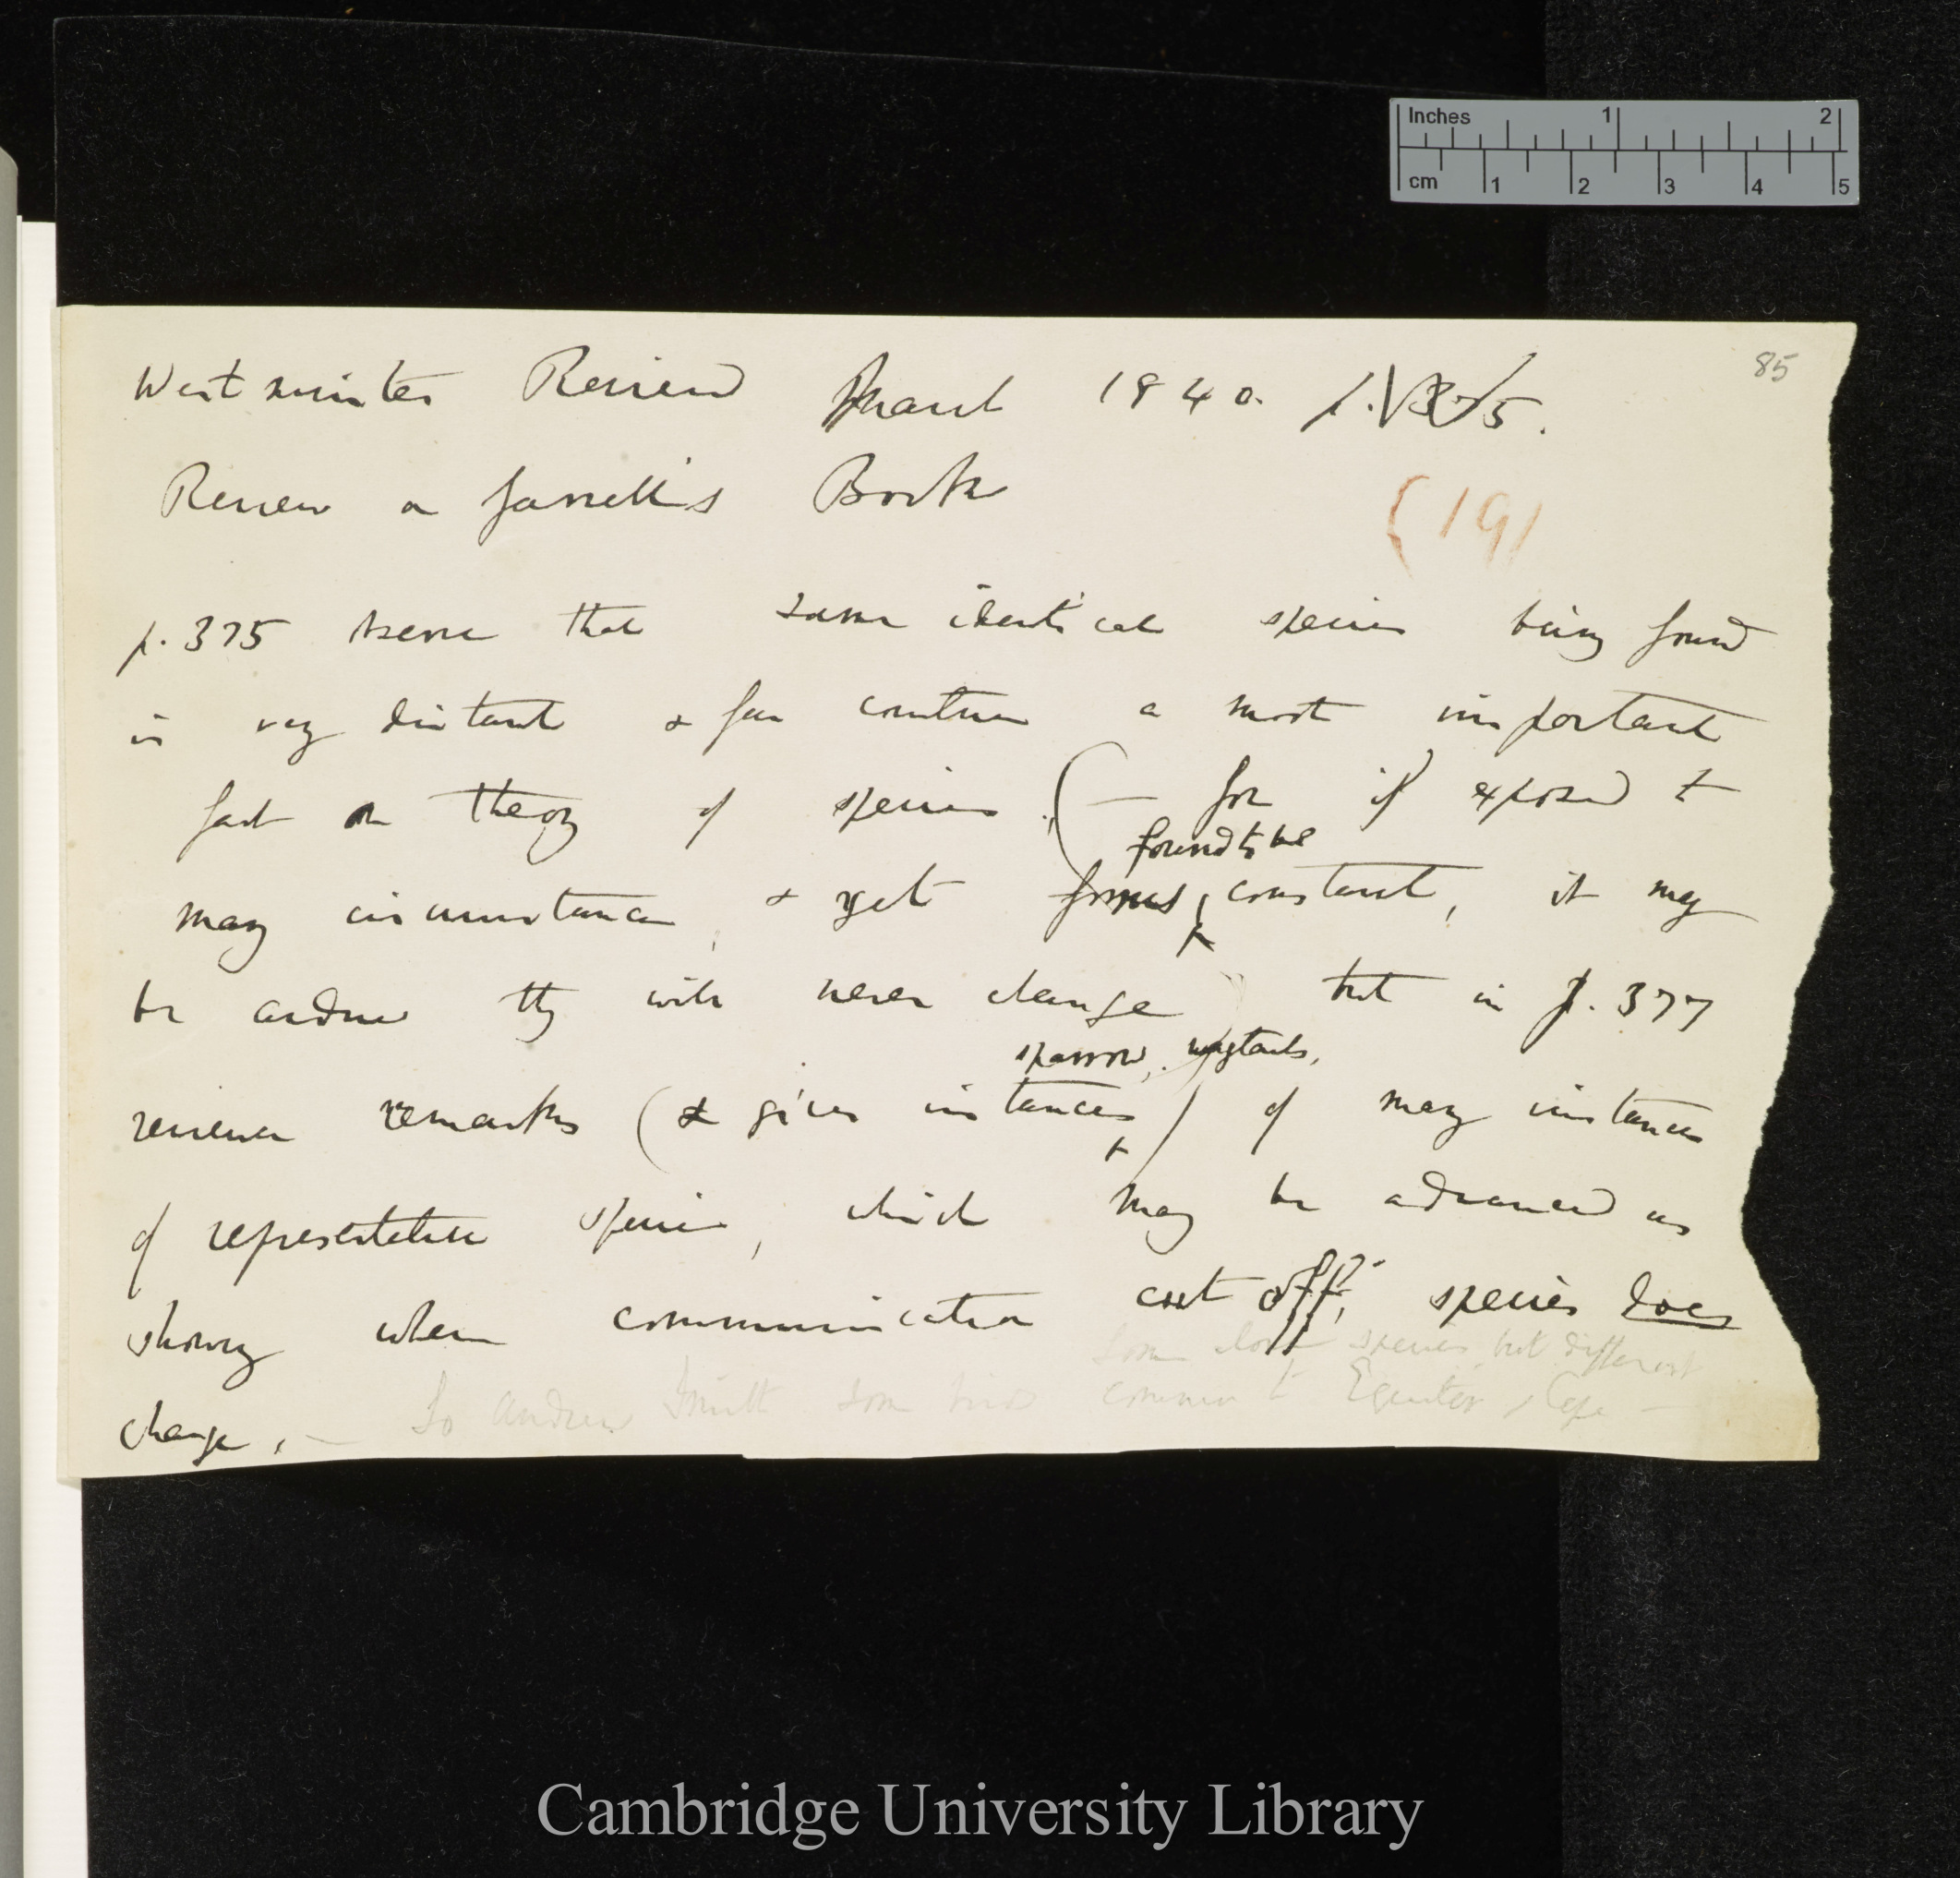 Inches 1 2
cm 1 2 3 4 5
85
Westminster Review March 1840. p. 375.
Review on Yarrell's Book
(19)
p. 375 that same identical species being found
in very distant & far countries a most important
fact on theory of species. (— for if exposed to
many circumstances, & yet forms found to be constant, it may
be they will never change but in p. 377
reviewer remarks (& gives instances sparrow, wagtails,) of many instances
of representative species, which may be advanced as
showing when communication cut off, species does
change. —
some close species but different
So Andrew Smith some birds common to Equator & Cape —
Cambridge University Library